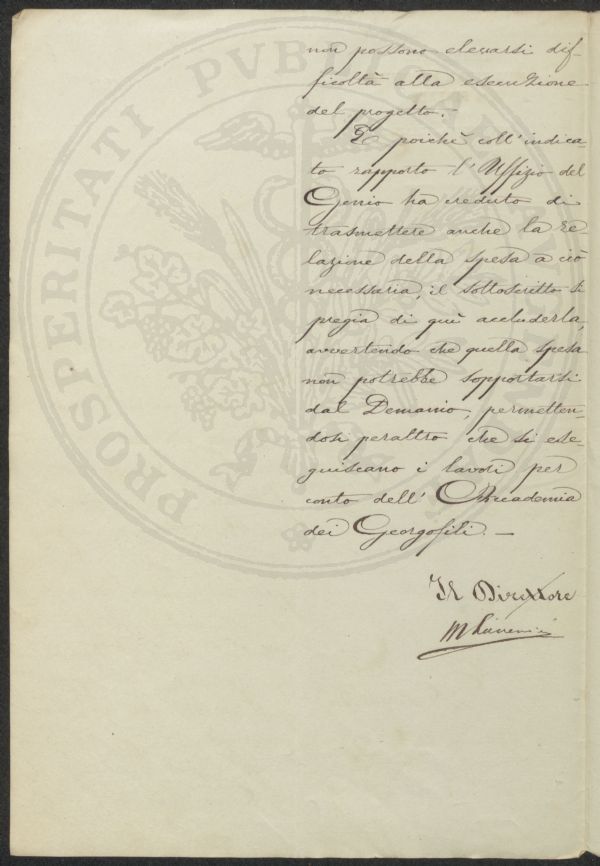 PROSPERITATI PVBLICAE
non possono elevarsi dif-
ficoltà alla esecuzione
del progetto.
E poichè coll'indica-
to rapporto l'Uffizio del
Genio ha creduto di
trasmettere anche la re-
lazione della spesa a ciò
necessaria, il sottoscritto si
pregia di quì accluderla,
avvertendo che quella spesa
non potrebbe sopportarsi
dal Demanio, permetten-
dosi peraltro che si ese-
guiscano i lavori per
conto dell'Accademia
dei Georgofili. —
Il Direttore